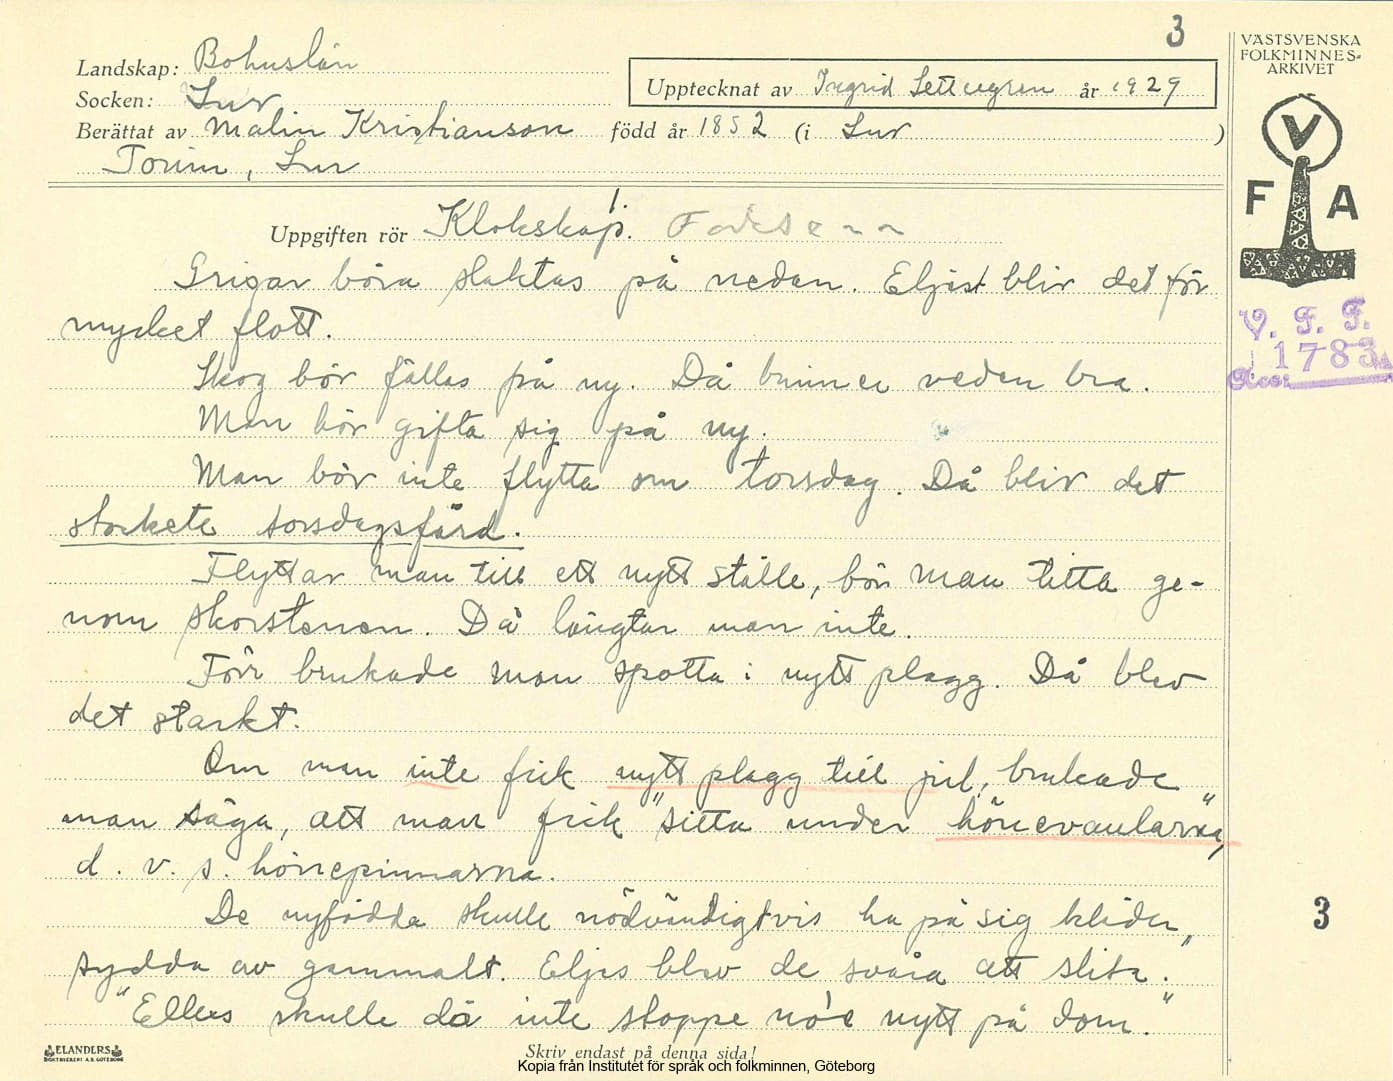 3
Landskap: Bohuslän
Socken: Lur
Upptecknat av Ingrid år 1929
Berättat av Malin Kristianson född år 1852 (i Lur )
Torim, Lur
VÄSTSVENSKA
FOLKMINNES-
ARKIVET
V
F A
V. F. F.
1783
Acc:
1.
Uppgiften rör Klokskap.
Grigar böra slaktas på nedan. Eljest blir det för
mycket flott.
Skog bör fällas på ny. Då brinner veden bra.
Man bör gifta sig på ny.
Man bör inte flytta om torsdag. Då blir det
stackete torsdagsfärd.
Flyttar man till ett nytt ställe, bör man titta ge-
nom skorstenen. Då längtar man inte.
Förr brukade man spotta i nytt plagg. Då blev
det starkt.
Om man inte fick nytt plagg till jul, brukade
man säga, att man fick "sitta under hönevanlarna",
d. v. s. hönepinnarna.
De nyfödda skulle nödvändigtvis ha på sig kläder,
sydda av gammalt. Eljes blev de svåra att slita.
"Ellers skulle då inte stoppe nó'e nytt på dom."
3
ELANDERS
BOKTRYCKERI A.B. GÖTEBORG
Skriv endast på denna sida!
Kopia från Institutet för språk och folkminnen, Göteborg